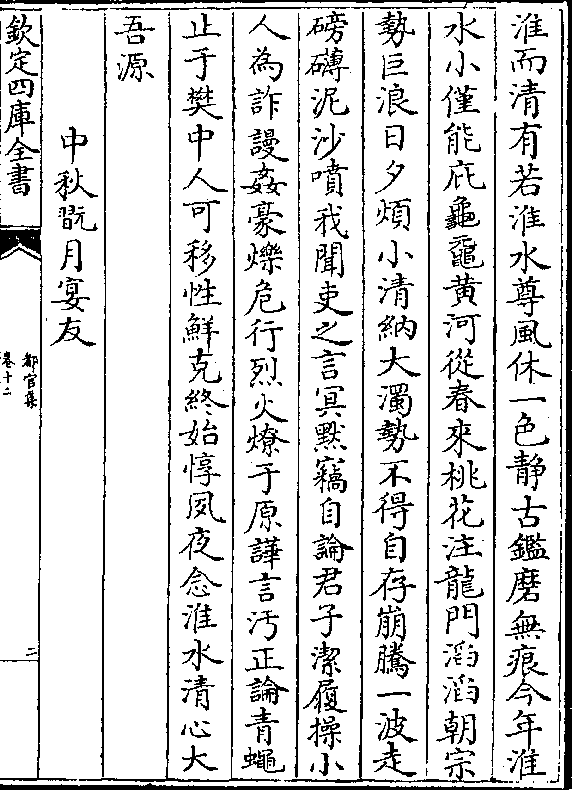 淮而清有若淮水尊風休一色靜古鑑磨無痕今年淮
水小僅能庇龜黿黃河從春來桃花注龍門滔滔朝宗
勢巨浪日夕煩小清納大濁勢不得自存崩騰一波走
磅礴泥沙噴我聞吏之言冥黙竊自論君子潔履操小
人為詐謾姦豪爍危行烈火燎于原譁言汚正論青蠅
止于樊中人可移性鮮克終始惇夙夜念淮水清心大
吾源
中秋翫月宴友
欽定四庫全書
都官集
卷十二
二